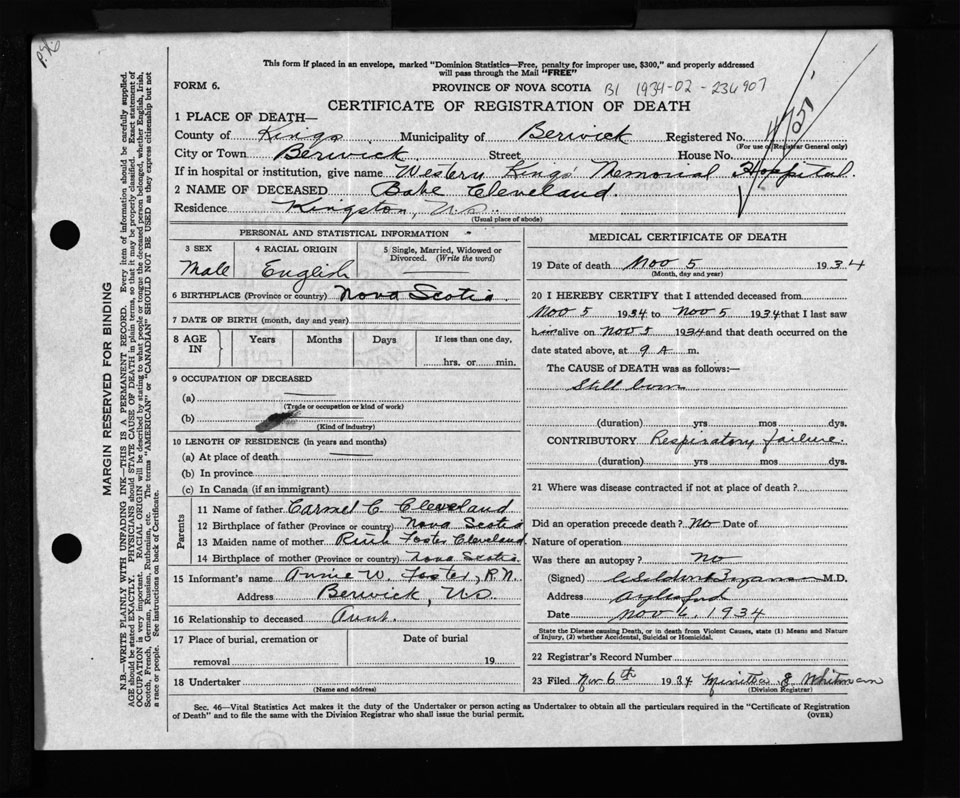 P.76
This form if placed in an envelope, marked "Dominion Statistics—Free, penalty for improper use, $300," and properly addressed
will pass through the Mail "FREE"
FORM 6.
PROVINCE OF NOVA SCOTIA B1 1934-02-236907
CERTIFICATE OF REGISTRATION OF DEATH
1 PLACE OF DEATH—
County of Kings Municipality of Berwick Registered No.
(For use of Registrar General only)
City or Town Berwick Street House No.
If in hospital or institution, give name Western Kings Memorial Hospital.
2 NAME OF DECEASED Babe Cleveland.
Residence Kingston, N.S.
(Usual place of abode)
PERSONAL AND STATISTICAL INFORMATION
3 SEX 4 RACIAL ORIGIN 5 Single, Married, Widowed or Divorced. (Write the word)
Male English
6 BIRTHPLACE (Province or country) Nova Scotia.
7 DATE OF BIRTH (month, day and year)
8 AGE IN Years Months Days If less than one day,
hrs. or min.
9 OCCUPATION OF DECEASED
(a) —
(Trade or occupation or kind of work)
(b)
(Kind of industry)
10 LENGTH OF RESIDENCE (in years and months)
(a) At place of death —
(b) In province
(c) In Canada (if an immigrant)
Parents
11 Name of father Carmel C. Cleveland
12 Birthplace of father (Province or country) Nova Scotia
13 Maiden name of mother Ruth Foster Cleveland
14 Birthplace of mother (Province or country) Nova Scotia.
15 Informant's name Annie W. Foster, R.N.
Address Berwick, N.S.
16 Relationship to deceased Aunt.
17 Place of burial, cremation or removal Date of burial
19
18 Undertaker
(Name and address)
MEDICAL CERTIFICATE OF DEATH
19 Date of death Nov 5 1934
(Month, day and year)
20 I HEREBY CERTIFY that I attended deceased from
Nov 5 1934 to Nov 5 1934 that I last saw
him alive on Nov 5 1934 and that death occurred on
date stated above, at 9 A m.
The CAUSE of DEATH was as follows:—
Still born
(duration) yrs mos dys.
CONTRIBUTORY Respiratory failure.
(duration) yrs mos dys.
21 Where was disease contracted if not at place of death?
Did an operation precede death? No Date of
Nature of operation
Was there an autopsy? No
(Signed) M.D.
Address Aylesford
Date Nov 6, 1934
State the Disease causing Death, or in death from Violent Causes, state (1) Means and Nature
of Injury, (2) whether Accidental, Suicidal or Homicidal.
22 Registrar's Record Number
23 Filed Nov 6th 1934 Whitman
(Division Registrar)
Sec. 46—Vital Statistics Act makes it the duty of the Undertaker or person acting as Undertaker to obtain all the particulars required in the "Certificate of Registration
of Death" and to file the same with the Division Registrar who shall issue the burial permit. (OVER)
MARGIN RESERVED FOR BINDING
N.B.—WRITE PLAINLY WITH UNFADING INK—THIS IS A PERMANENT RECORD. Every item of information should be carefully supplied.
AGE should be stated EXACTLY. PHYSICIANS should STATE CAUSE OF DEATH in plain terms, so that it may be properly classified. Exact statement of
OCCUPATION is very important. RACIAL ORIGIN will be described by stating to what people or tongue the deceased person belonged, whether English, Irish,
Scotch, French, German, Russian, Ruthenian, etc. The terms "AMERICAN" or "CANADIAN" SHOULD NOT BE USED as they express citizenship but not
a race or people. See instructions on back of Certificate.